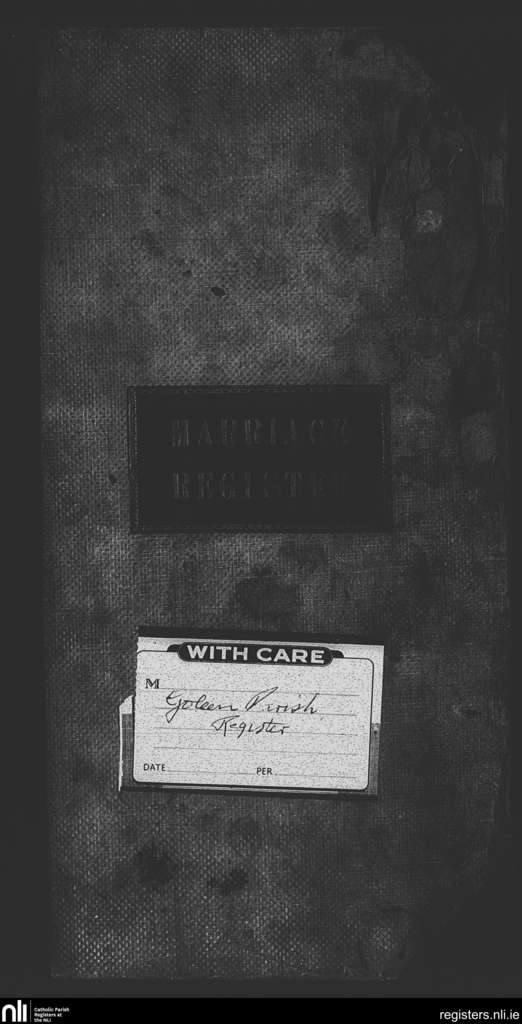 MARRIAGE
REGISTER
WITH CARE
M
Goleen Parish
Register
DATE PER
nli
Catholic Parish
Registers at
the NLI
registers.nli.ie